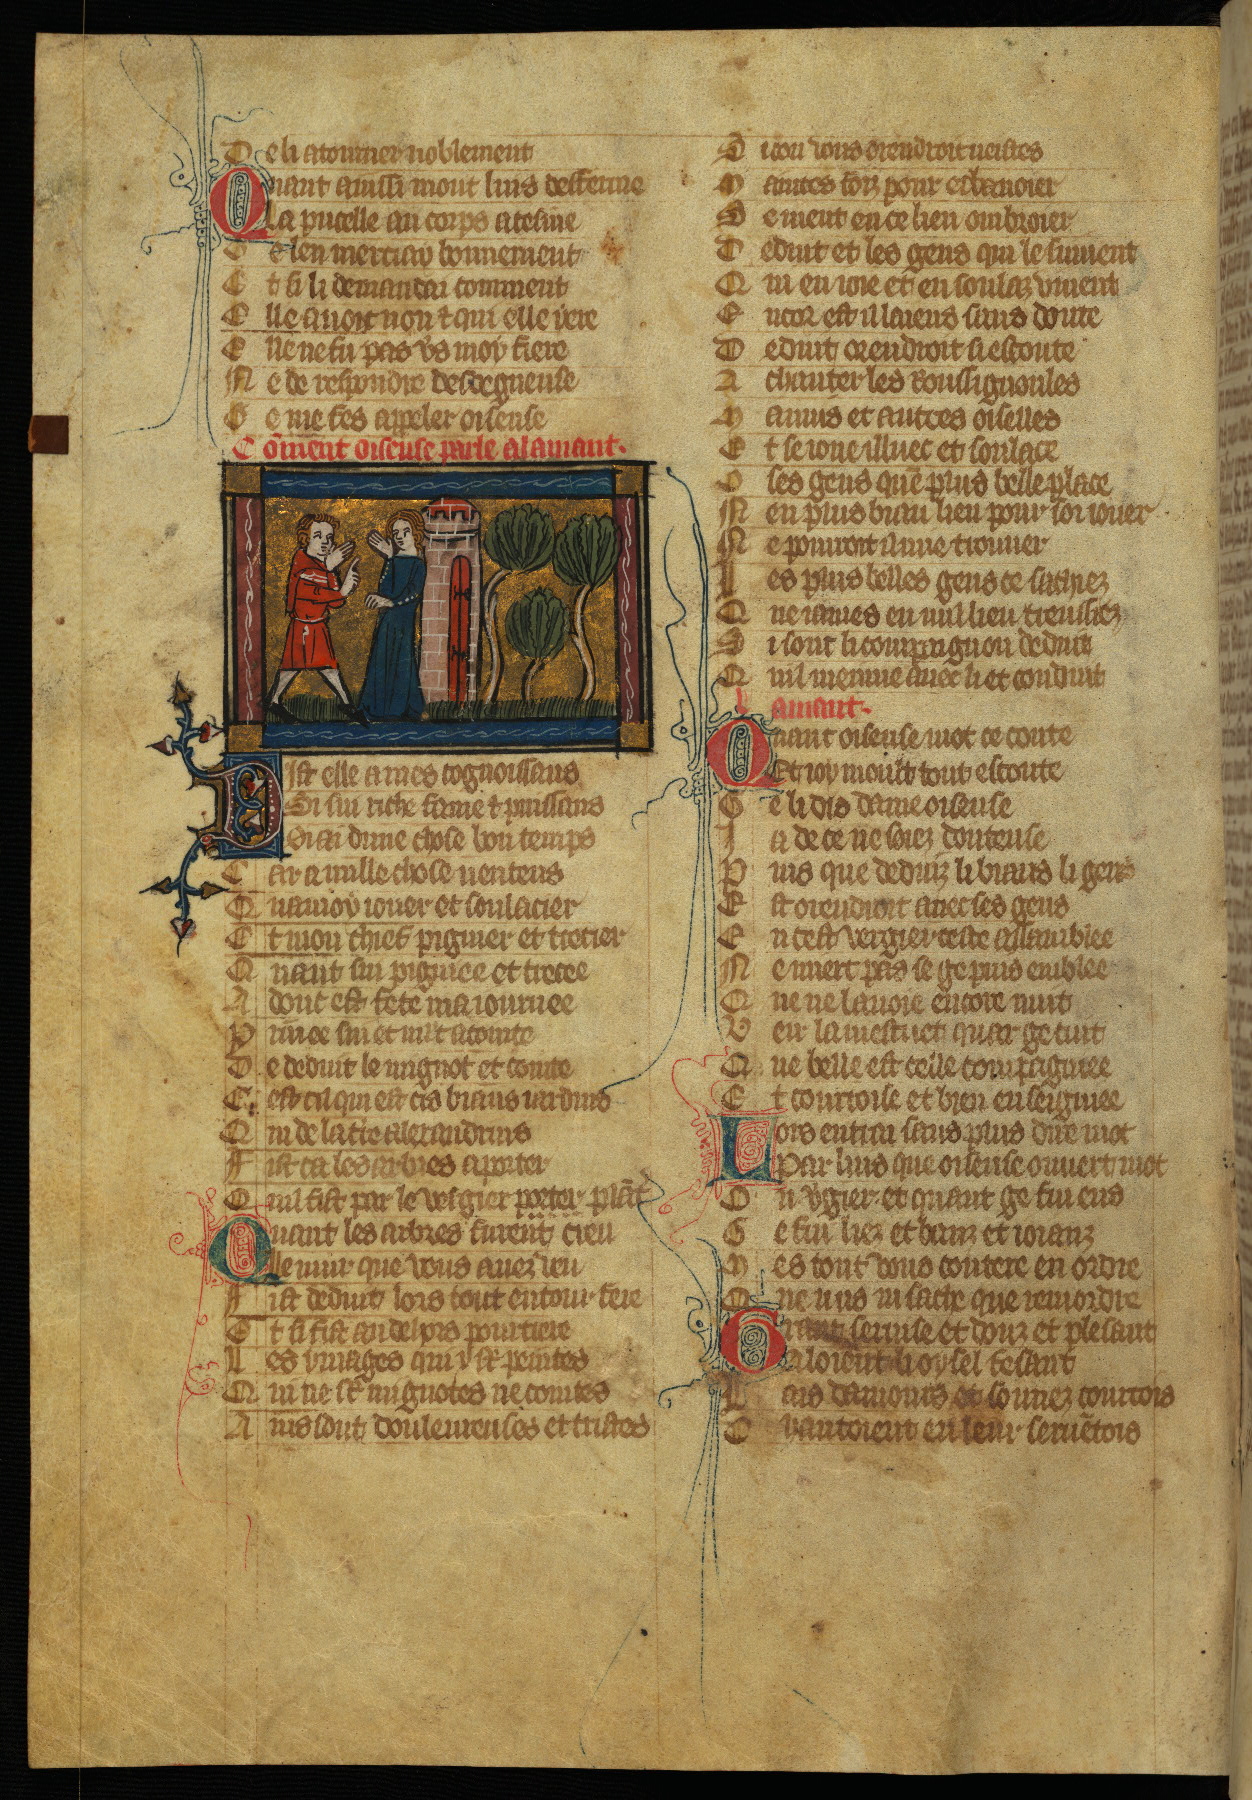 De li atourner noblement
Quant ainssi mout luis defferme
La pucelle au corps acesme
Ge len merciay bonnement
Et si li demandai comment
Elle auoit non & qui elle yere
Elle ne fu pas vs moy fiere
Ne de respondre desdegneuse
Ge me fes appeler oiseuse
Coment oiseuse parle alamant
Dist elle a mes cognoissans
Si sui riche fame & puissans
Si ai dune chose bon temps
Car a nulle chose nentens
Qua moy iouer et soulacier
Et mon chief pignier et trecier
Quant sui pignee et trecee
Adont est fete ma iournee
Priuee sui et mlt acointe
De deduit le mignot et cointe
Cest cil qui est cis biaus iardins
Qui de la tre alexandrins
Fist ca les arbres aporter
Quil fist par le vergier porter plat
Quant les arbres furent creu
Le mur que vous auez veu
Fist deduit lors tout entour fere
Et si fist au dehors pourtrere
Les ymages qui y st peintes
Qui ne st mignotes ne cointes
Ains sont doulereuses et tristes
Si con vous orendroit veistes
Maintes foiz pour esbanoier
Se vient en ce lieu ombroier
Deduit et les gens qui le siuuent
Qui en ioie et en soulaz viuent
Encor est il laiens sans doute
Deduit orendroit si escoute
A chanter les Roussignoules
Mauuis et autres oiselles
Et se ioue illuec et soulace
O ses gens que plus belle place
Nen plus biau lieu pour soi iouer
Ne pourroit il mie trouuer
Les plus belles gens ce sachiez
Que iames en nul lieu treuissiez
Si sont li compaignon deduit
Quil menne auec li et conduit
lamant
Quant oiseuse mot ce conte
Et ioy moult tout escoute
Ge li dis dame oiseuse
Ja de ce ne soiez douteuse
Puis que deduiz li biaus li gens
Est orendroit auec ses gens
En cest vergier ceste assamblee
Ne miert pas se ge puis emblee
Que ne la voie encore nuit
Veir la mestuet quar ge cuit
Que belle est celle compagnee
Et courtoise et bien enseignee
Lors entrai sans plus dire mot
Par luis que oiseuse ouuert mot
On vgier et quant ge fui ens
Ge fui liez et bauz et ioianz
Mes tout vous contere en ordre
Que nus ni sache que remordre
Grant seruise et douz et plesant
Aloient li oysel fesant
Lais damours et sonnez courtois
Chantoient en leur seruetois